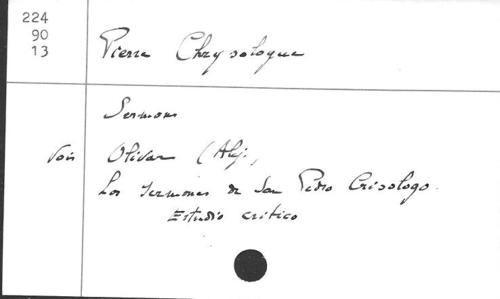 224
90
13
Pierre Chrysologue
Sermons
Voir Olivar (Alej.,
Los sermones de San Pedro Crisologo.
Estudio critico